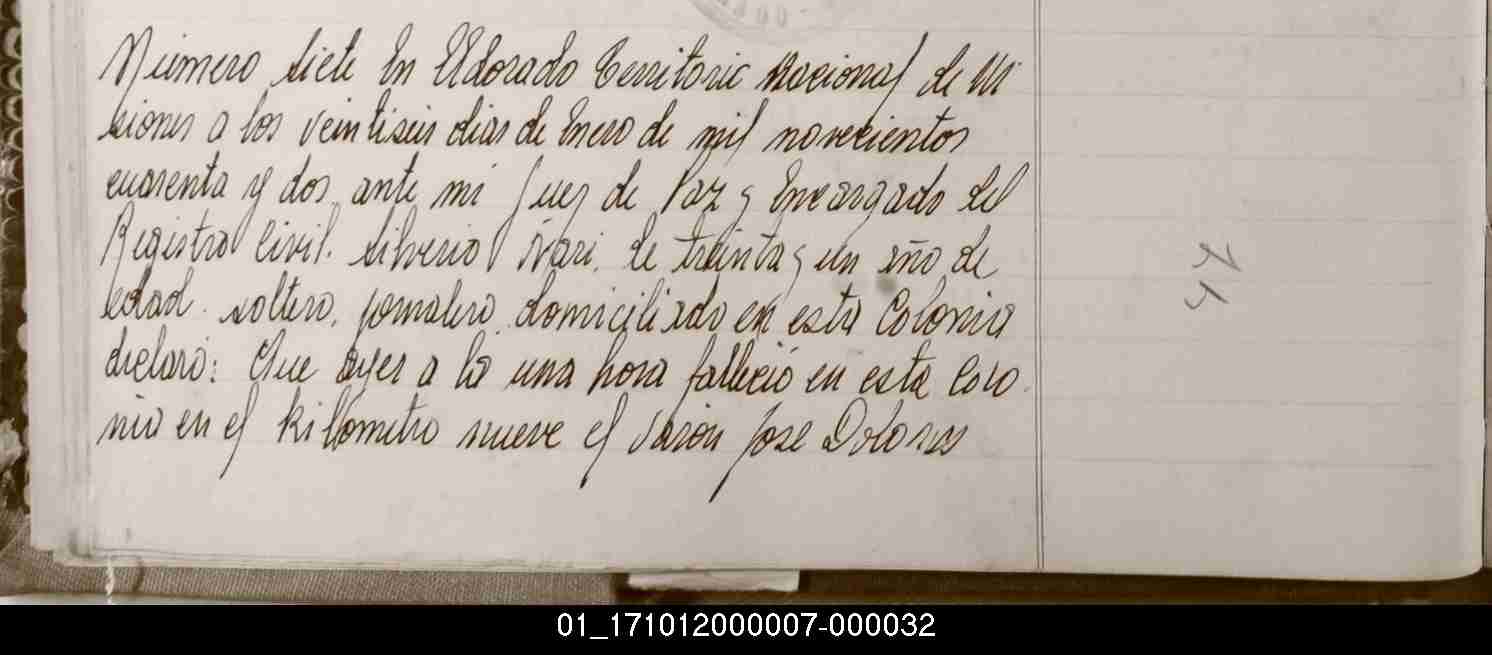 Número siete En Eldorado Territorio Nacional de Mi
siones a los veintiseis dias de Enero de mil novecientos
cuarenta y dos ante mi Juez de Paz y Encargado del
Registro Civil. Silverio Nari. de treinta y un año de
edad. soltero, jornalero, domiciliado en esta Colonia
declaró: Que ayer a la una hora falleció en esta Colo
nia en el kilómetro nueve el varon Jose Dolores
01_171012000007-000032